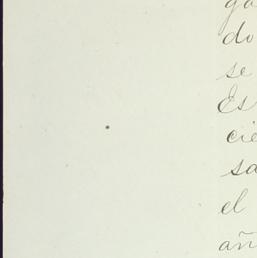 ga
do
se
Es
cie
sa
el
añ